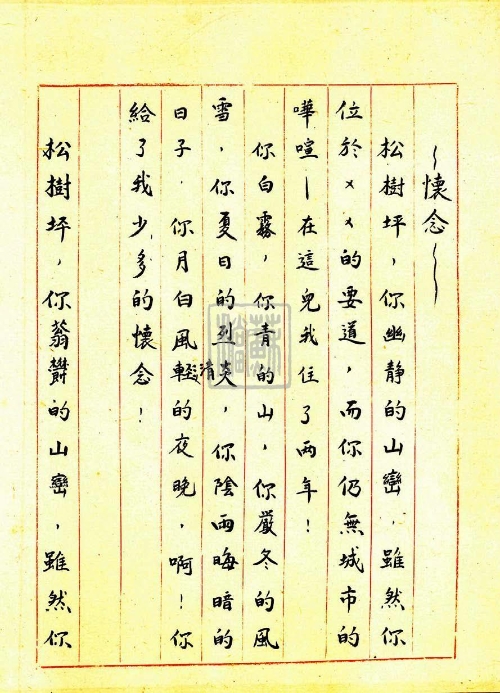 ～懷念～
松樹坪，你幽靜的山巒，雖然你
位於ㄨㄨ的要道，而你仍無城市的
嘩喧—在這兒我住了兩年！
你白霧，你青的山，你嚴冬的風
雪，你夏日的烈炎，你陰雨晦暗的
日子．你月白風輕清的夜晚，啊！你
給了我少多的懷念！
松樹坪，你蓊鬱的山巒，雖然你